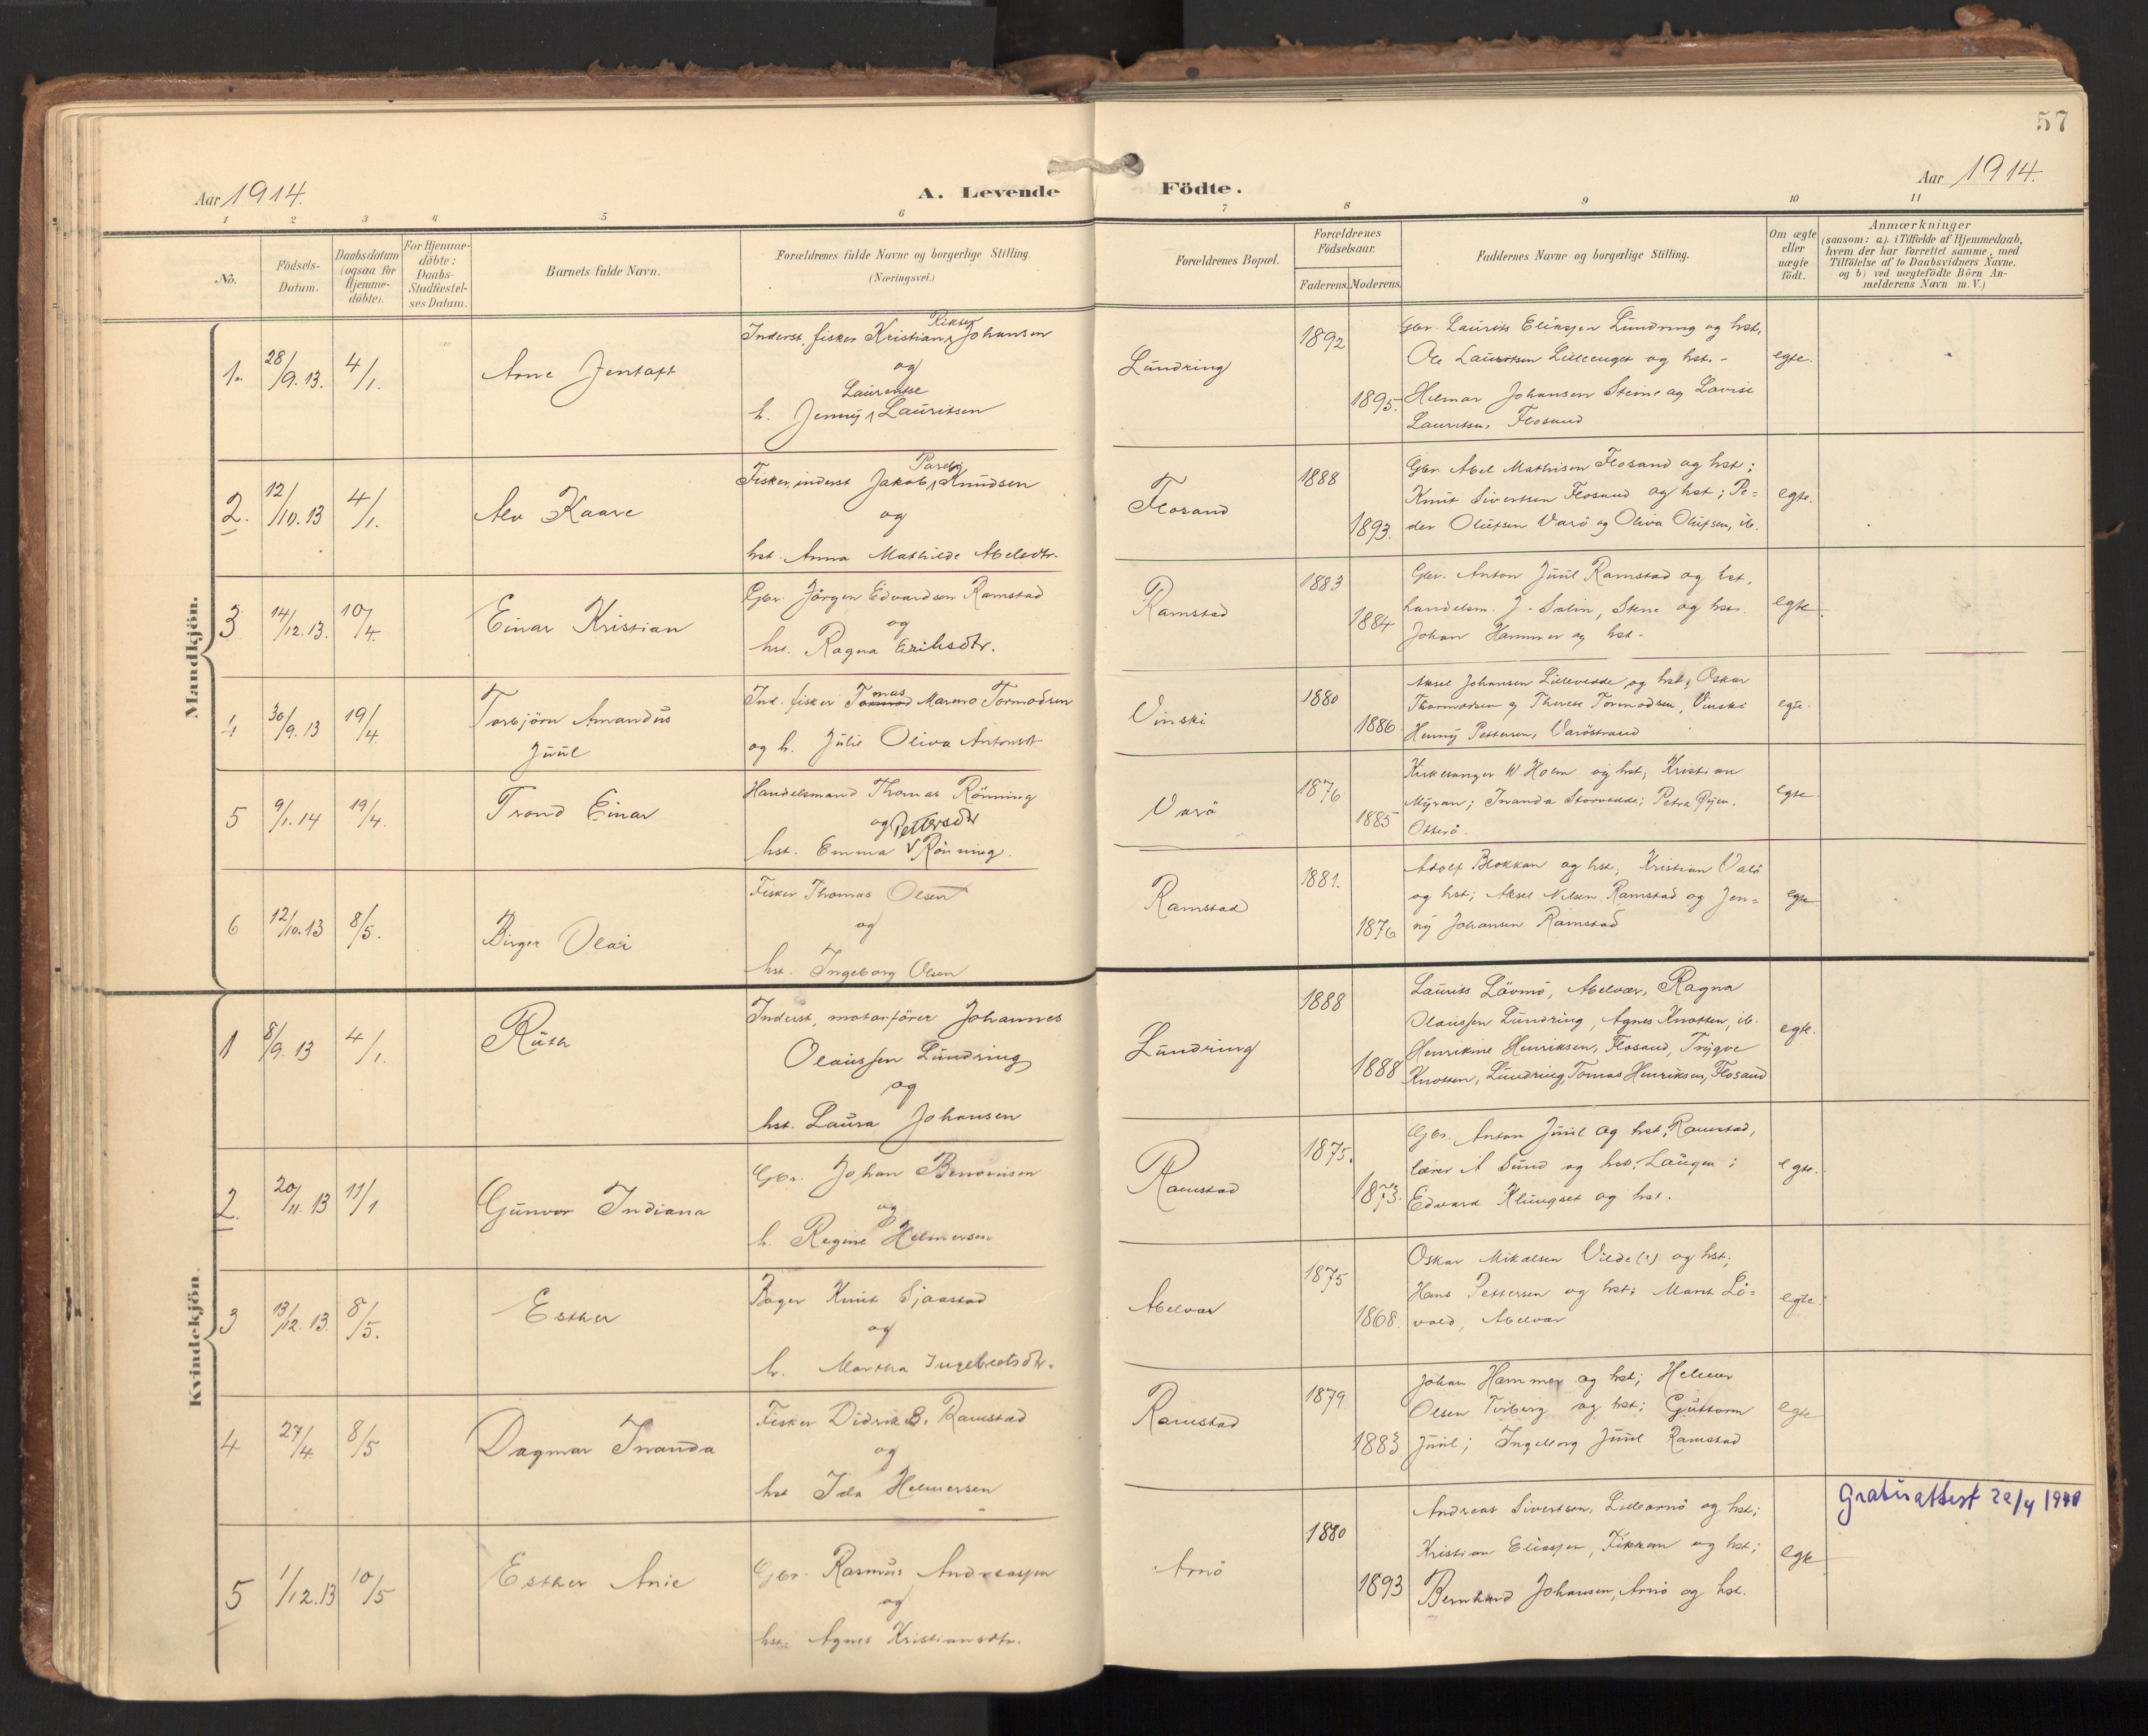 57
Aar 1914.
A. Levende Födte.
Aar 1914.
1 2 3 4 5 6 7 8 9 10 11
No.
Födsels-
Datum.
Daabsdatum
(ogsaa for
Hjemme-
döbte).
For Hjemme-
döbte:
Daabs-
Stadfæstel-
ses Datum.
Barnets fulde Navn.
Forældrenes fulde Navne og borgerlige Stilling.
(Næringsvei.)
Forældrenes Bopæl.
Forældrenes
Födselsaar.
Faderens. Moderens.
Faddernes Navne og borgerlige Stilling.
Om ægte
eller
uægte
födt.
Anmærkninger
(saasom: a). i Tilfælde af Hjemmedaab,
hvem der har forrettet samme, med
Tilföielse af to Daabsvidners Navne.
og b) ved uægtefödte Börn An-
melderens Navn m. V.)
Mandkjön.
1. 28/9.13. 4/1. Arne Jentoft
Inderst, fisker Kristian Johansen
og
Laurentse
h. Jenny Lauritsen
Lundring
1892
1895.
Gbr. Laurits Eliassen Lundring og hst,
Ole Lauritsen Lilleenget og hst. -
Hilmar Johansen Steine og Lovise
Lauritsen, Flosand
egte.
2. 12/10.13 4/1. Alv Kaare
Fisker, inderst Jakob Knudsen
og
hst. Anna Mathilde Abelsdtr.
Flosand
1888
1893.
Gbr. Abel Mathisen Flosand og hst;
Knut Sivertsen Flosand og hst; Pe=
der Olufsen Varö og Oliva Olufsen, ib.
egte.
3 14/12.13. 10/4. Einar Kristian
Gbr. Jörgen Edvardsen Ramstad
og
hst. Ragna Eriksdtr.
Ramstad
1883
1884
Gbr. Anton Juul Ramstad og hst,
handelsm. J. Salin, Stene og hst.
Johan Hammer og hst-
egte.
4 30/9.13 19/4. Torbjörn Amandus
Juul
Ind. fisker Tomas Marino Tormodsen
og h. Julie Oliva Antonsdt
Vinski
1880
1886
Aksel Johansen Lillevedde og hst; Oskar
Thormodsen og Therese Tormodsen, Vinski
Henny Pettersen, Varöstrand
egte.
5 9/1.14 19/4. Trond Einar
Handelsmand Thomas Rönning
og Pettersdtr
hst. Emma V Rönning.
Varö
1876
1885
Kirkesanger W Holm og hst, Kristian
Myran; Inanda Storvedde; Petra Öijen,
Otterö.
egte.
6 12/10.13 8/5. Birger Olai
Fisker Thomas Olsen
og
hst. Ingeborg Olsen
Ramstad
1881.
1876
Adolf Blokkan og hst, Kristian Valö
og hst; Aksel Nilsen Ramstad og Jen=
ny Johansen Ramstad
egte
Kvindekjön.
1 8/9.13 4/1. Ruth
Inderst, motorförer Johannes
Olaussen Lundring
og
hst. Laura Johansen
Lundring
1888
1888
Laurits Lövmo, Abelvær, Ragna
Olaussen Lundring, Agnes Knotten, ib.
Henrikine Henriksen, Flosand, Trygve
Knotten, Lundring, Tomas Henriksen, Flosand
egte.
2. 20/11.13 11/1 Gunvor Indiana
Gbr. Johan Benonisen
og
h. Regine Helmersen
Ramstad
1875.
1873.
Gbr. Anton Juul og hst, Ramstad,
lærer A Sund og hst. Laugen;
Edvard Klungset og hst.
egte.
3 13/12.13. 8/5. Esther
Bager Knut Sjaastad
og
h. Martha Ingebretsdtr.
Abelvær
1875
1868.
Oskar Mikalsen Viede(?) og hst;
Hans Pettersen og hst; Marit Lö=
vold, Abelvær
egte.
4 27/4. 8/5 Dagmar Inanda
Fisker Didrik B. Ramstad
og
hst Ida Helmersen
Ramstad
1879.
1883
Johan Hammer og hst; Helmer
Olsen Torberg og hst; Guttorm
Juul; Ingeborg Juul Ramstad
egte
5 1/12.13 10/5 Esther Anie
Gbr. Rasmus Andreassen
og
hst. Agnes Kristiansdtr.
Arnö
1880
1893
Andreas Sivertsen, Lillearnö og hst;
Kristian Eliassen, Fikkan og hst;
Bernhard Johansen, Arnö og hst.
egte
Gratisattest 22/4 1940